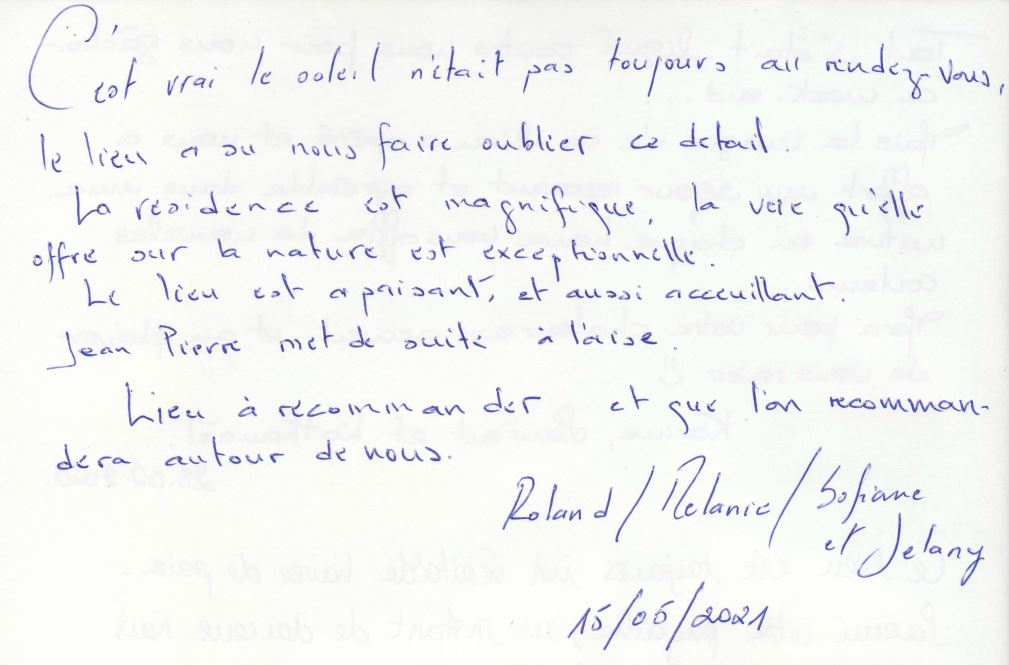 C'est vrai le soleil n'était pas toujours au rendez-vous,
le lieu a su nous faire oublier ce detail.
La résidence est magnifique, la vue qu'elle
offre sur la nature est exceptionnelle.
Le lieu est apaisant, et aussi acceuillant.
Jean Pierre met de suite a l'aise.
Lieu à recommander et que l'on recomman-
dera autour de nous.
Roland / Melanie / Sofiane
et Jelany
15/05/2021